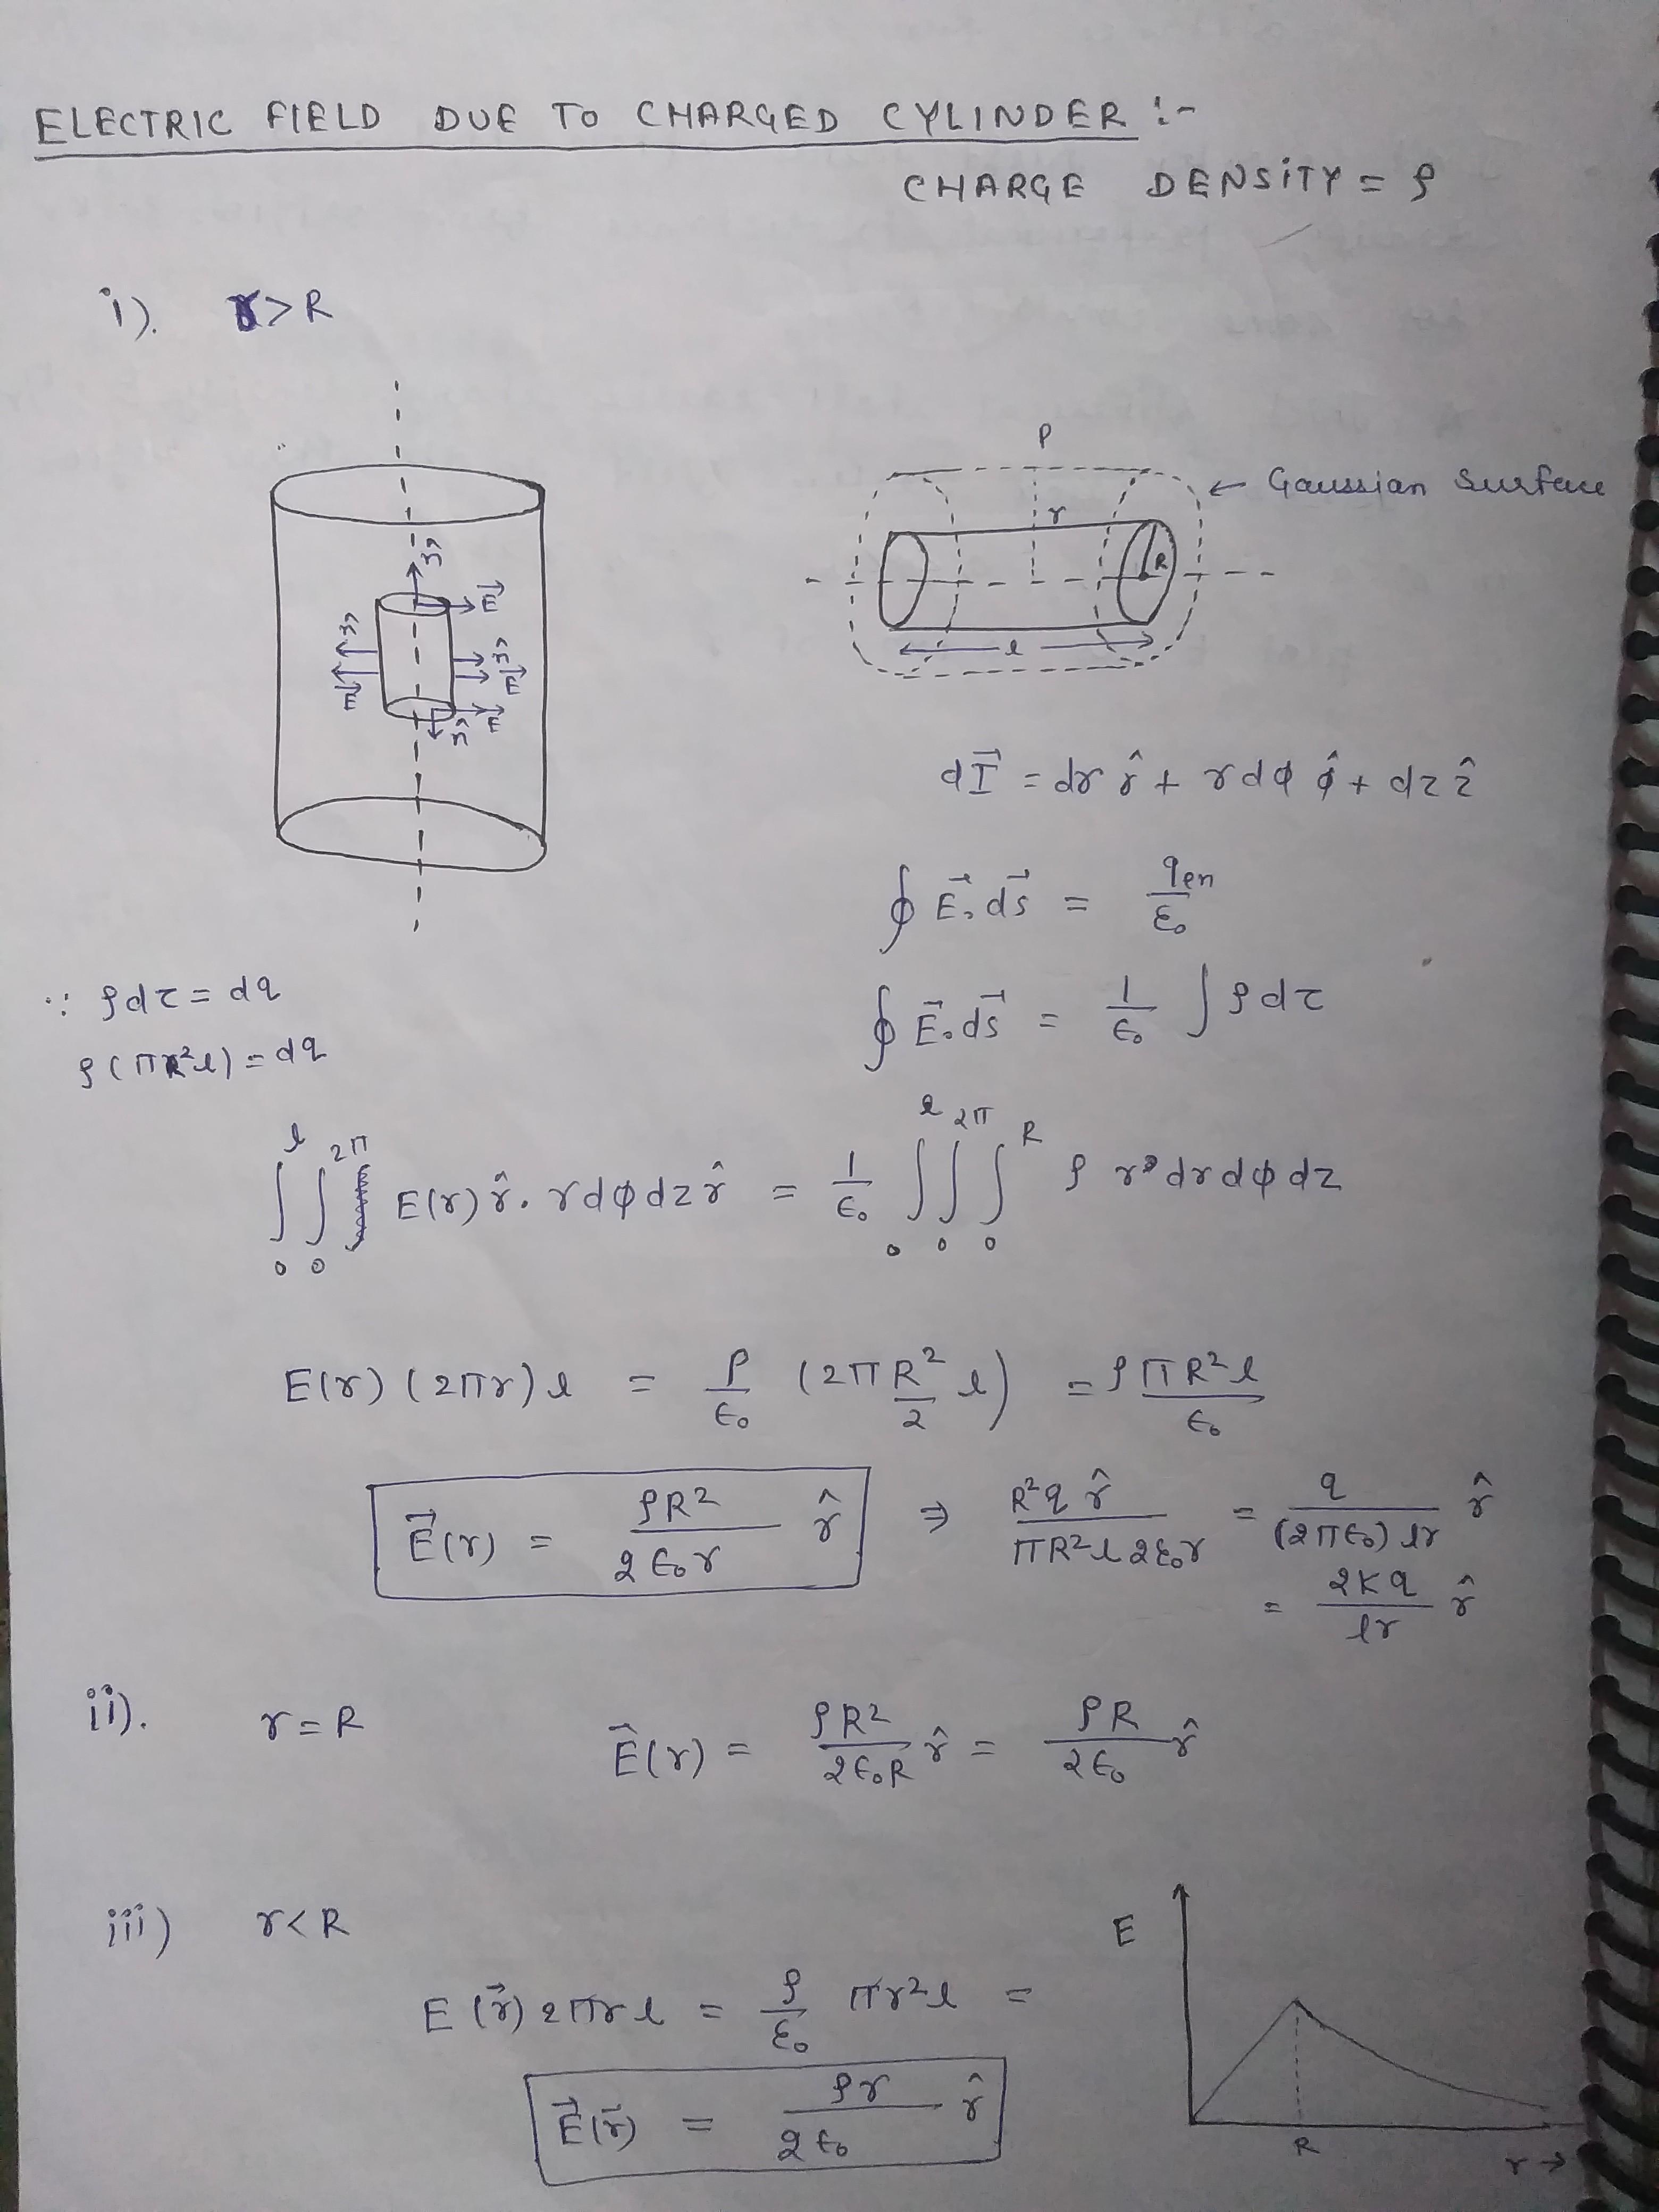 ELECTRIC FIELD DUE TO CHARGED CYLINDER :-
CHARGE DENSITY = ρ
i). r > R
n̂
E⃗
n̂
E⃗
n̂
E⃗
n̂
E⃗
P
← Gaussian Surface
r
R
l
dI⃗ = dr r̂ + r dϕ ϕ̂ + dz ẑ
∮ E⃗. ds⃗ = qen/ε₀
∵ ρdτ = dq
∮ E⃗. ds⃗ = 1/ε₀ ∫ ρdτ
ρ(πR²l) = dq
∫₀^l ∫₀^2π E(r) r̂. r dϕ dz r̂ = 1/ε₀ ∫₀^l ∫₀^2π ∫₀^R ρ r dr dϕ dz
E(r) (2πr) l = ρ/ε₀ (2π R²/2 l) = ρπR²l/ε₀
E⃗(r) = ρR²/2ε₀r r̂ ⇒ R²q r̂/πR²l2ε₀r = q/(2πε₀) lr r̂
= 2Kq/lr r̂
ii). r = R E⃗(r) = ρR²/2ε₀R r̂ = ρR/2ε₀ r̂
iii) r < R
E
E(r⃗) 2πrl = ρ/ε₀ πr²l =
E⃗(r⃗) = ρr/2ε₀ r̂
R
r →